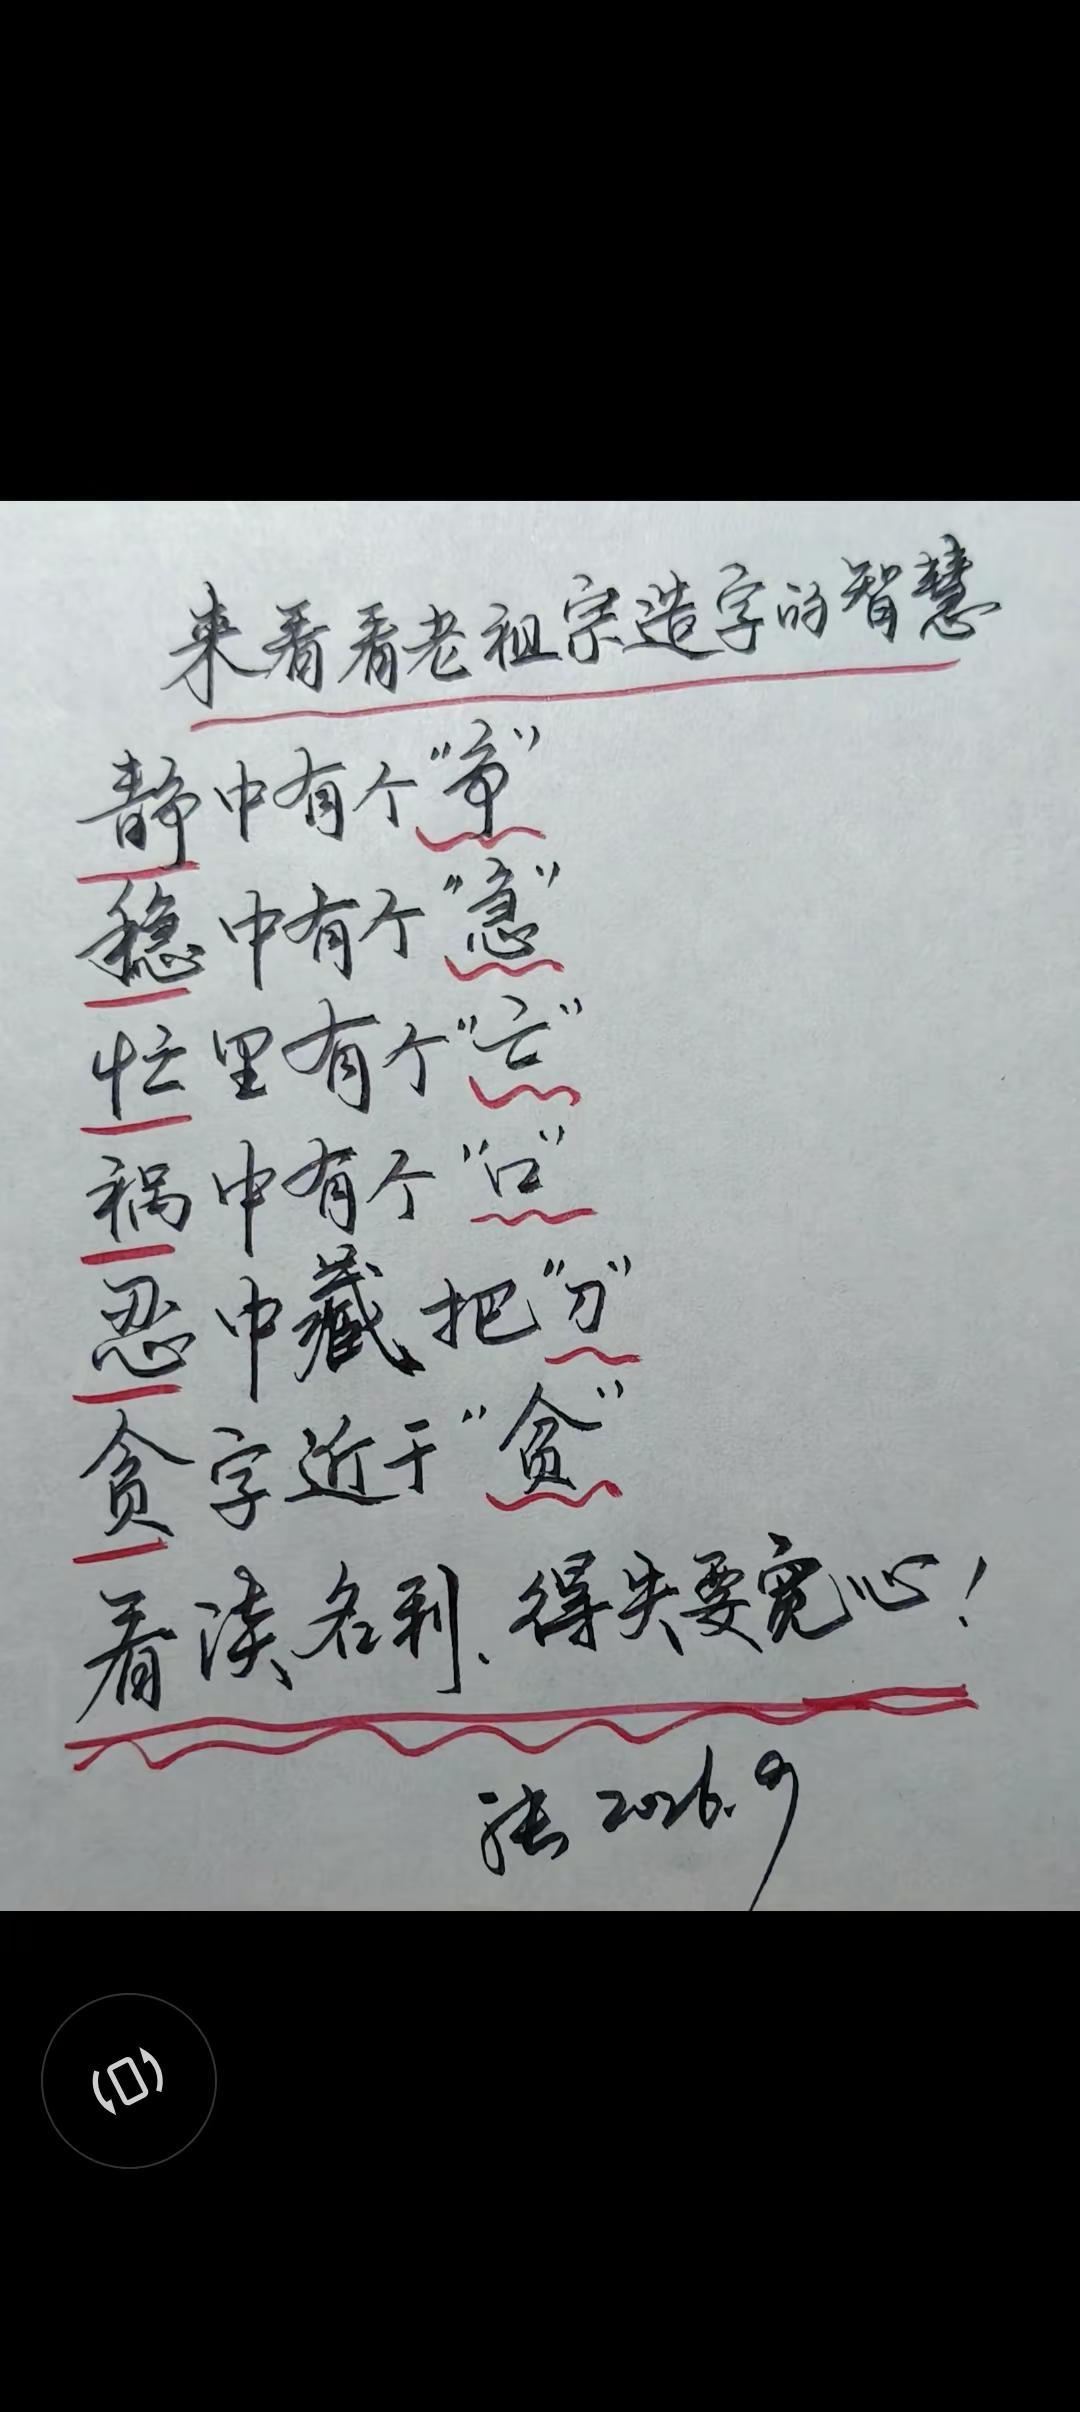 来看看老祖宗造字的智慧
静中有个“争”
稳中有个“急”
忙里有个“亡”
祸中有个“口”
忍中藏把“刀”
贪字近于“贫”
看淡名利、得失要宽心！
张 2026.9